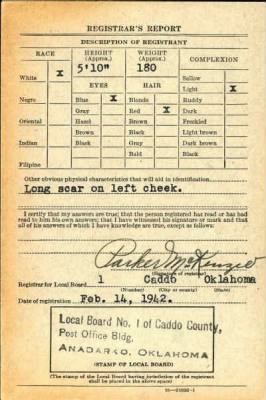 REGISTRAR'S REPORT
DESCRIPTION OF REGISTRANT
RACE HEIGHT (Approx.) WEIGHT (Approx.) COMPLEXION
5'10" 180
White X Sallow
EYES HAIR Light X
Negro Blue X Blonde Ruddy
Gray Red X Dark
Oriental Hazel Brown Freckled
Brown Black Light brown
Indian Black Gray Dark brown
Bald Black
Filipino
Other obvious physical characteristics that will aid in identification
Long scar on left cheek.
I certify that my answers are true; that the person registered has read or has had
read to him his own answers; that I have witnessed his signature or mark and that
all of his answers of which I have knowledge are true, except as follows:
Parker McKenzie
(Signature of registrar)
Registrar for Local Board 1 Caddo Oklahoma
(Number) (City or county) (State)
Date of registration Feb. 14, 1942.
Local Board No. 1 of Caddo County,
Post Office Bldg.
ANADARKO, OKLAHOMA
(STAMP OF LOCAL BOARD)
(The stamp of the Local Board having jurisdiction of the registrant
shall be placed in the above space)